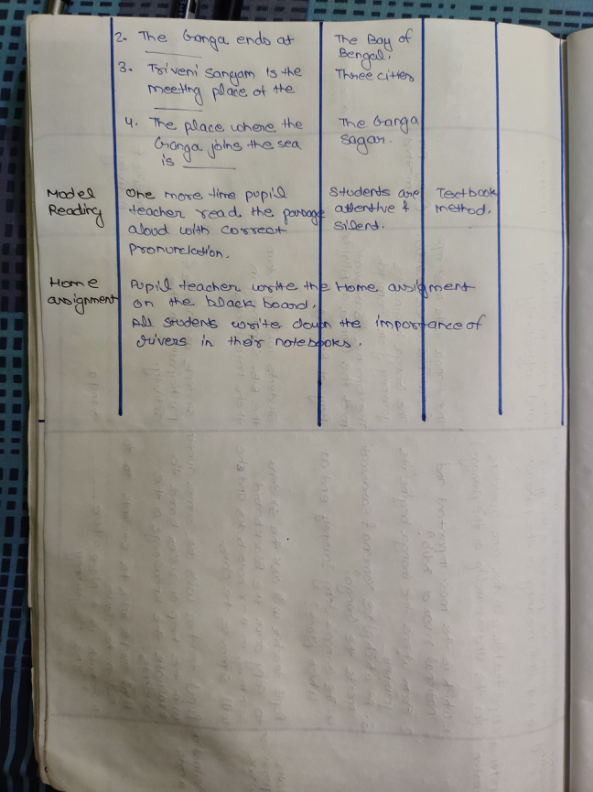 2. The Ganga ends at ______
The Bay of
Bengal.
3. Triveni Sangam is the
meeting place of the ______
Three cities
4. The place where the
Ganga joins the sea
is ______
The Ganga
Sagar.
Model
Reading
One more time pupil
teacher read the passage
aloud with correct
pronunciation.
Students are
attentive &
silent.
Textbook
method.
Home
assignment
Pupil teacher write the Home assigment
on the black board.
All students write down the importance of
rivers in their notebooks.